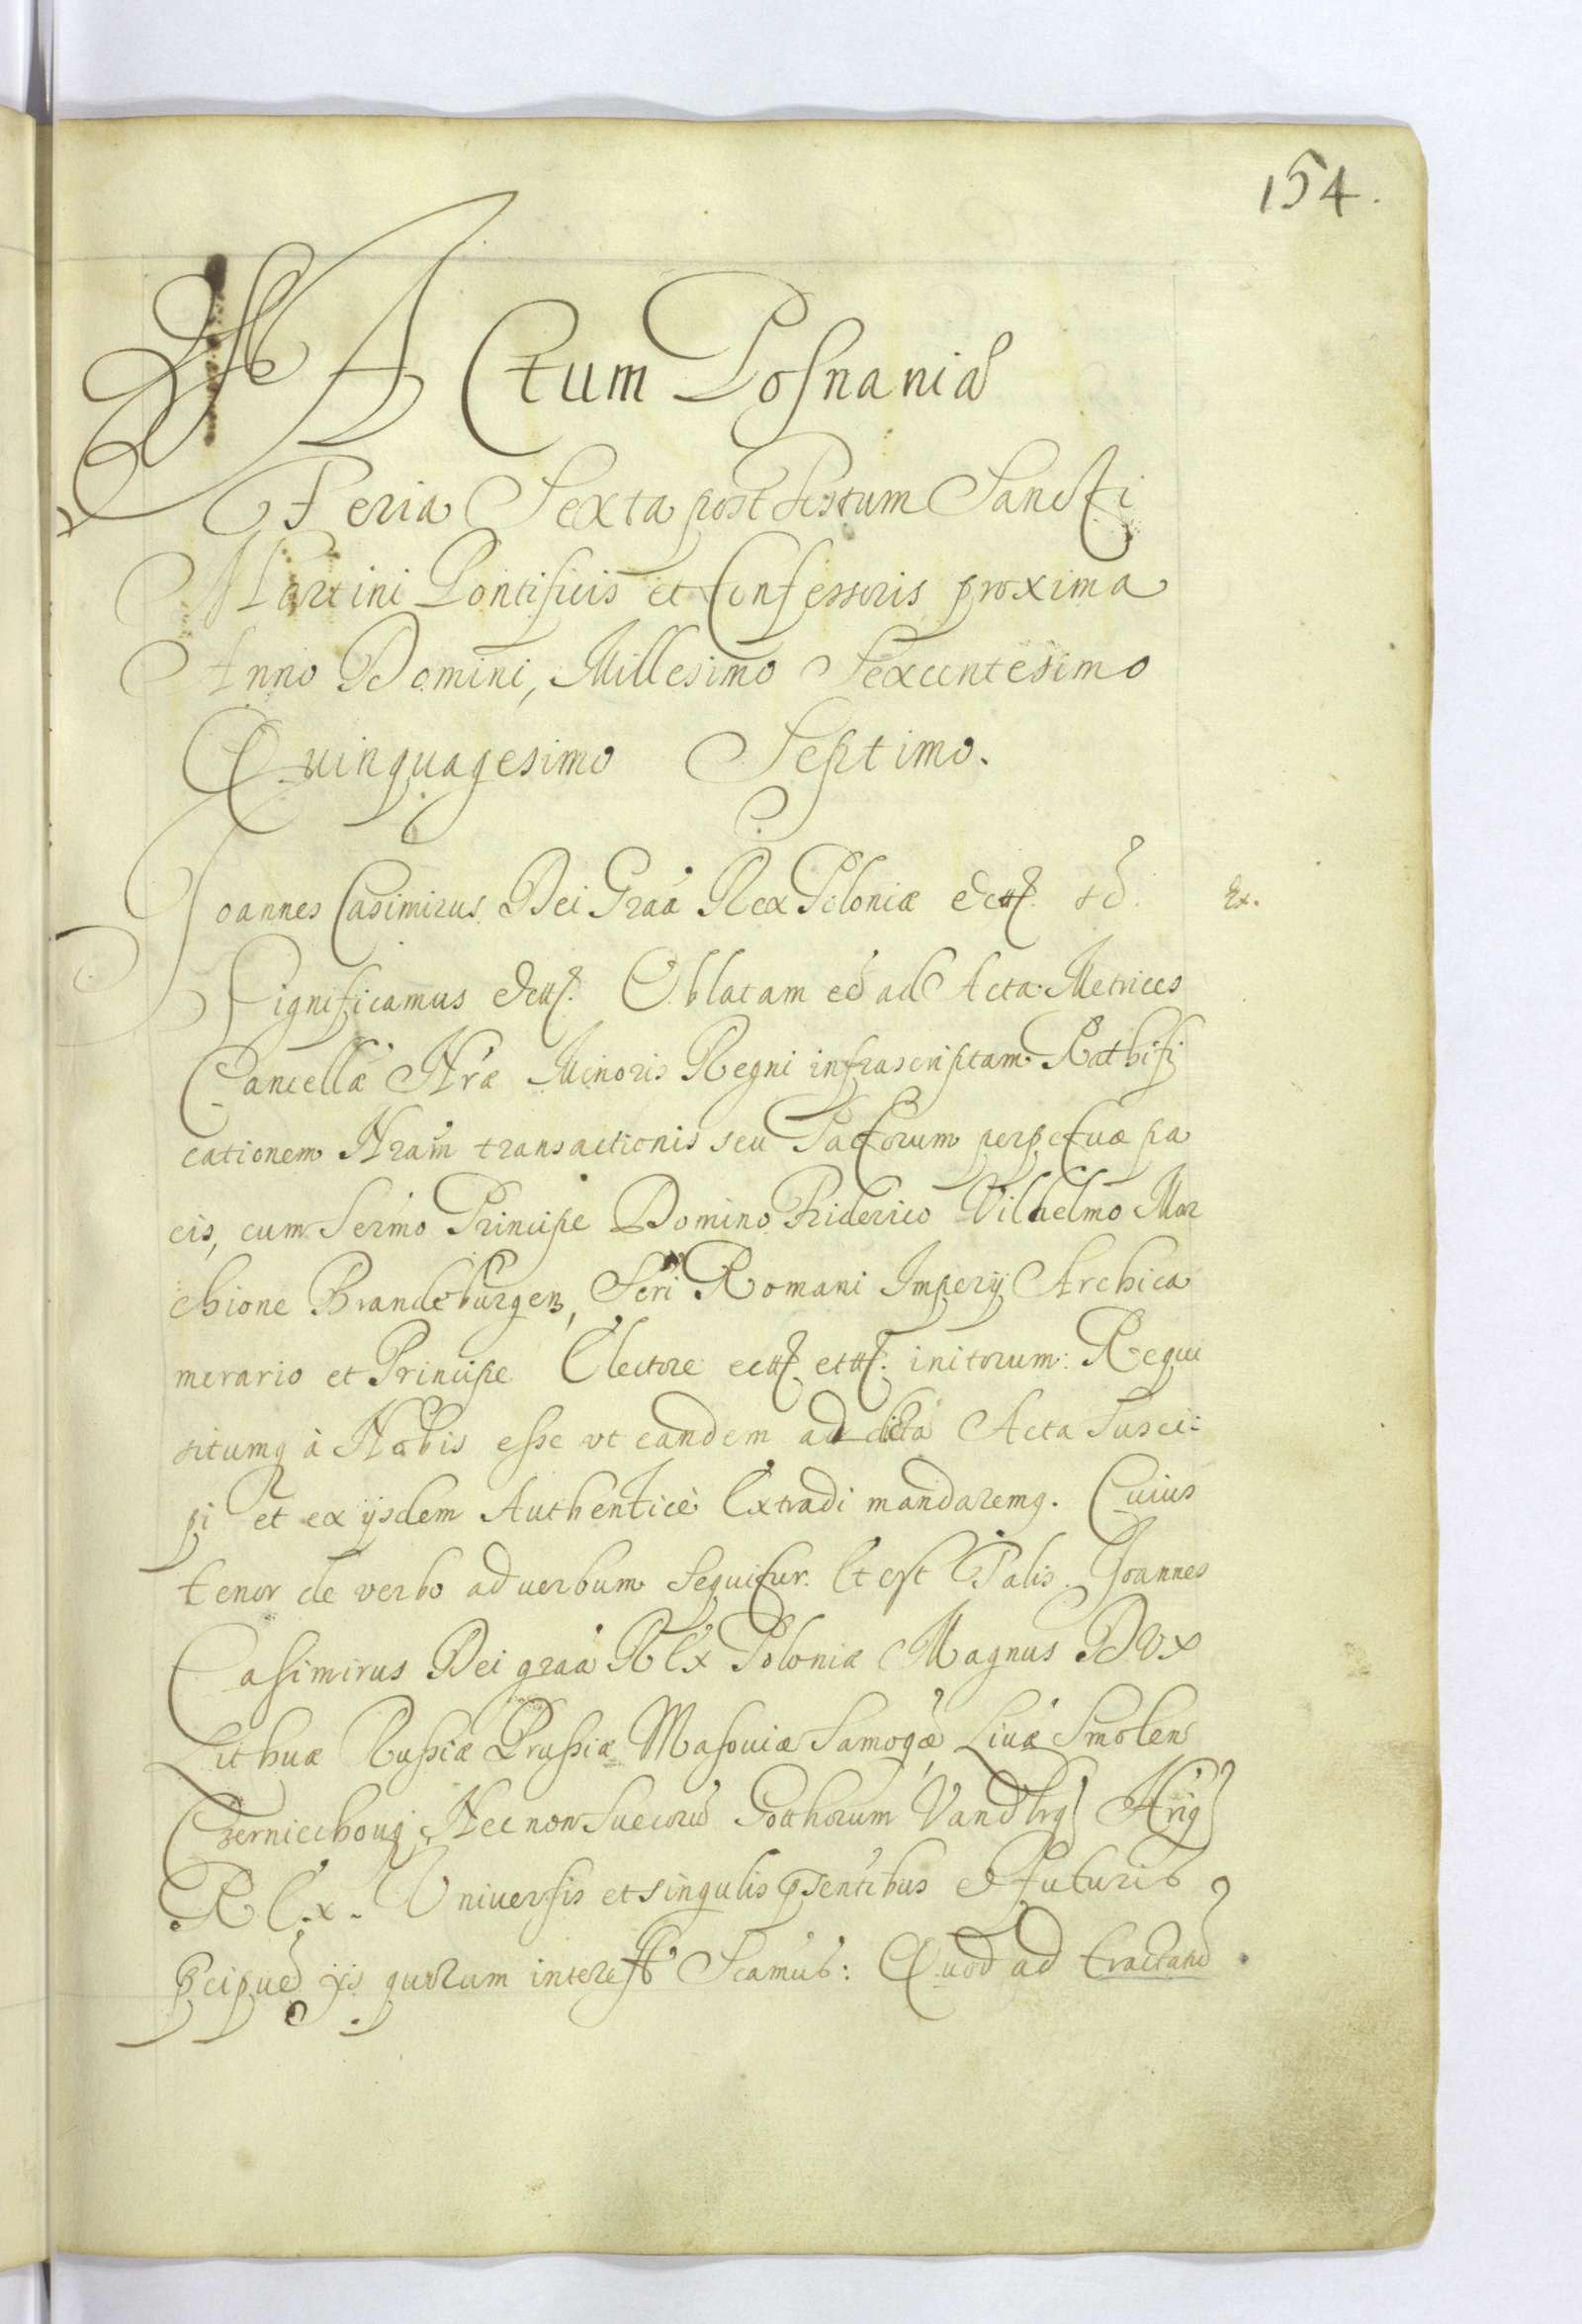 154.
Actum Posnaniæ
Feria Sexta post Festum Sancti
Martini Pontificis et Confessoris proxima
Anno Domini, Millesimo Sexcentesimo
Quinquagesimo Septimo.
Joannes Casimirus Dei Graã Rex Poloniæ &c
Ex.
Significamus &c. Oblatam eẽ ad Acta Metrices
Cancellæ Nræ Minoris Regni infrascriptam Rathifi
cationem Nram transactionis seu Pactorum perpetuæ pa
cis, cum Sermo Principe Domino Friderico Vilhelmo Mar
chione Brandeburgen, Scri Romani Imperij Archica
merario et Principe Electore initorum: Requi
situmq à Nobis esse vt eandem ad dicta Acta Susci:
pi et ex ijsdem Authenticè Extradi mandaremq. Cuius
tenor de verbo ad uerbum Sequitur. Et est Talis. Joannes
Casimirus Dei graã REx Poloniæ Magnus DUx
Lithuæ Russiæ Prussiæ Masouiæ Samogæ Liuæ Smolen
Czerniechouq Nec non Suecorũ Gotthorum Vandlrq Hrig
REx. Uniuersis et singulis pñsentibus et futuris
pcipuẽ ijs quorum interest Scamus: Quod ad tractand